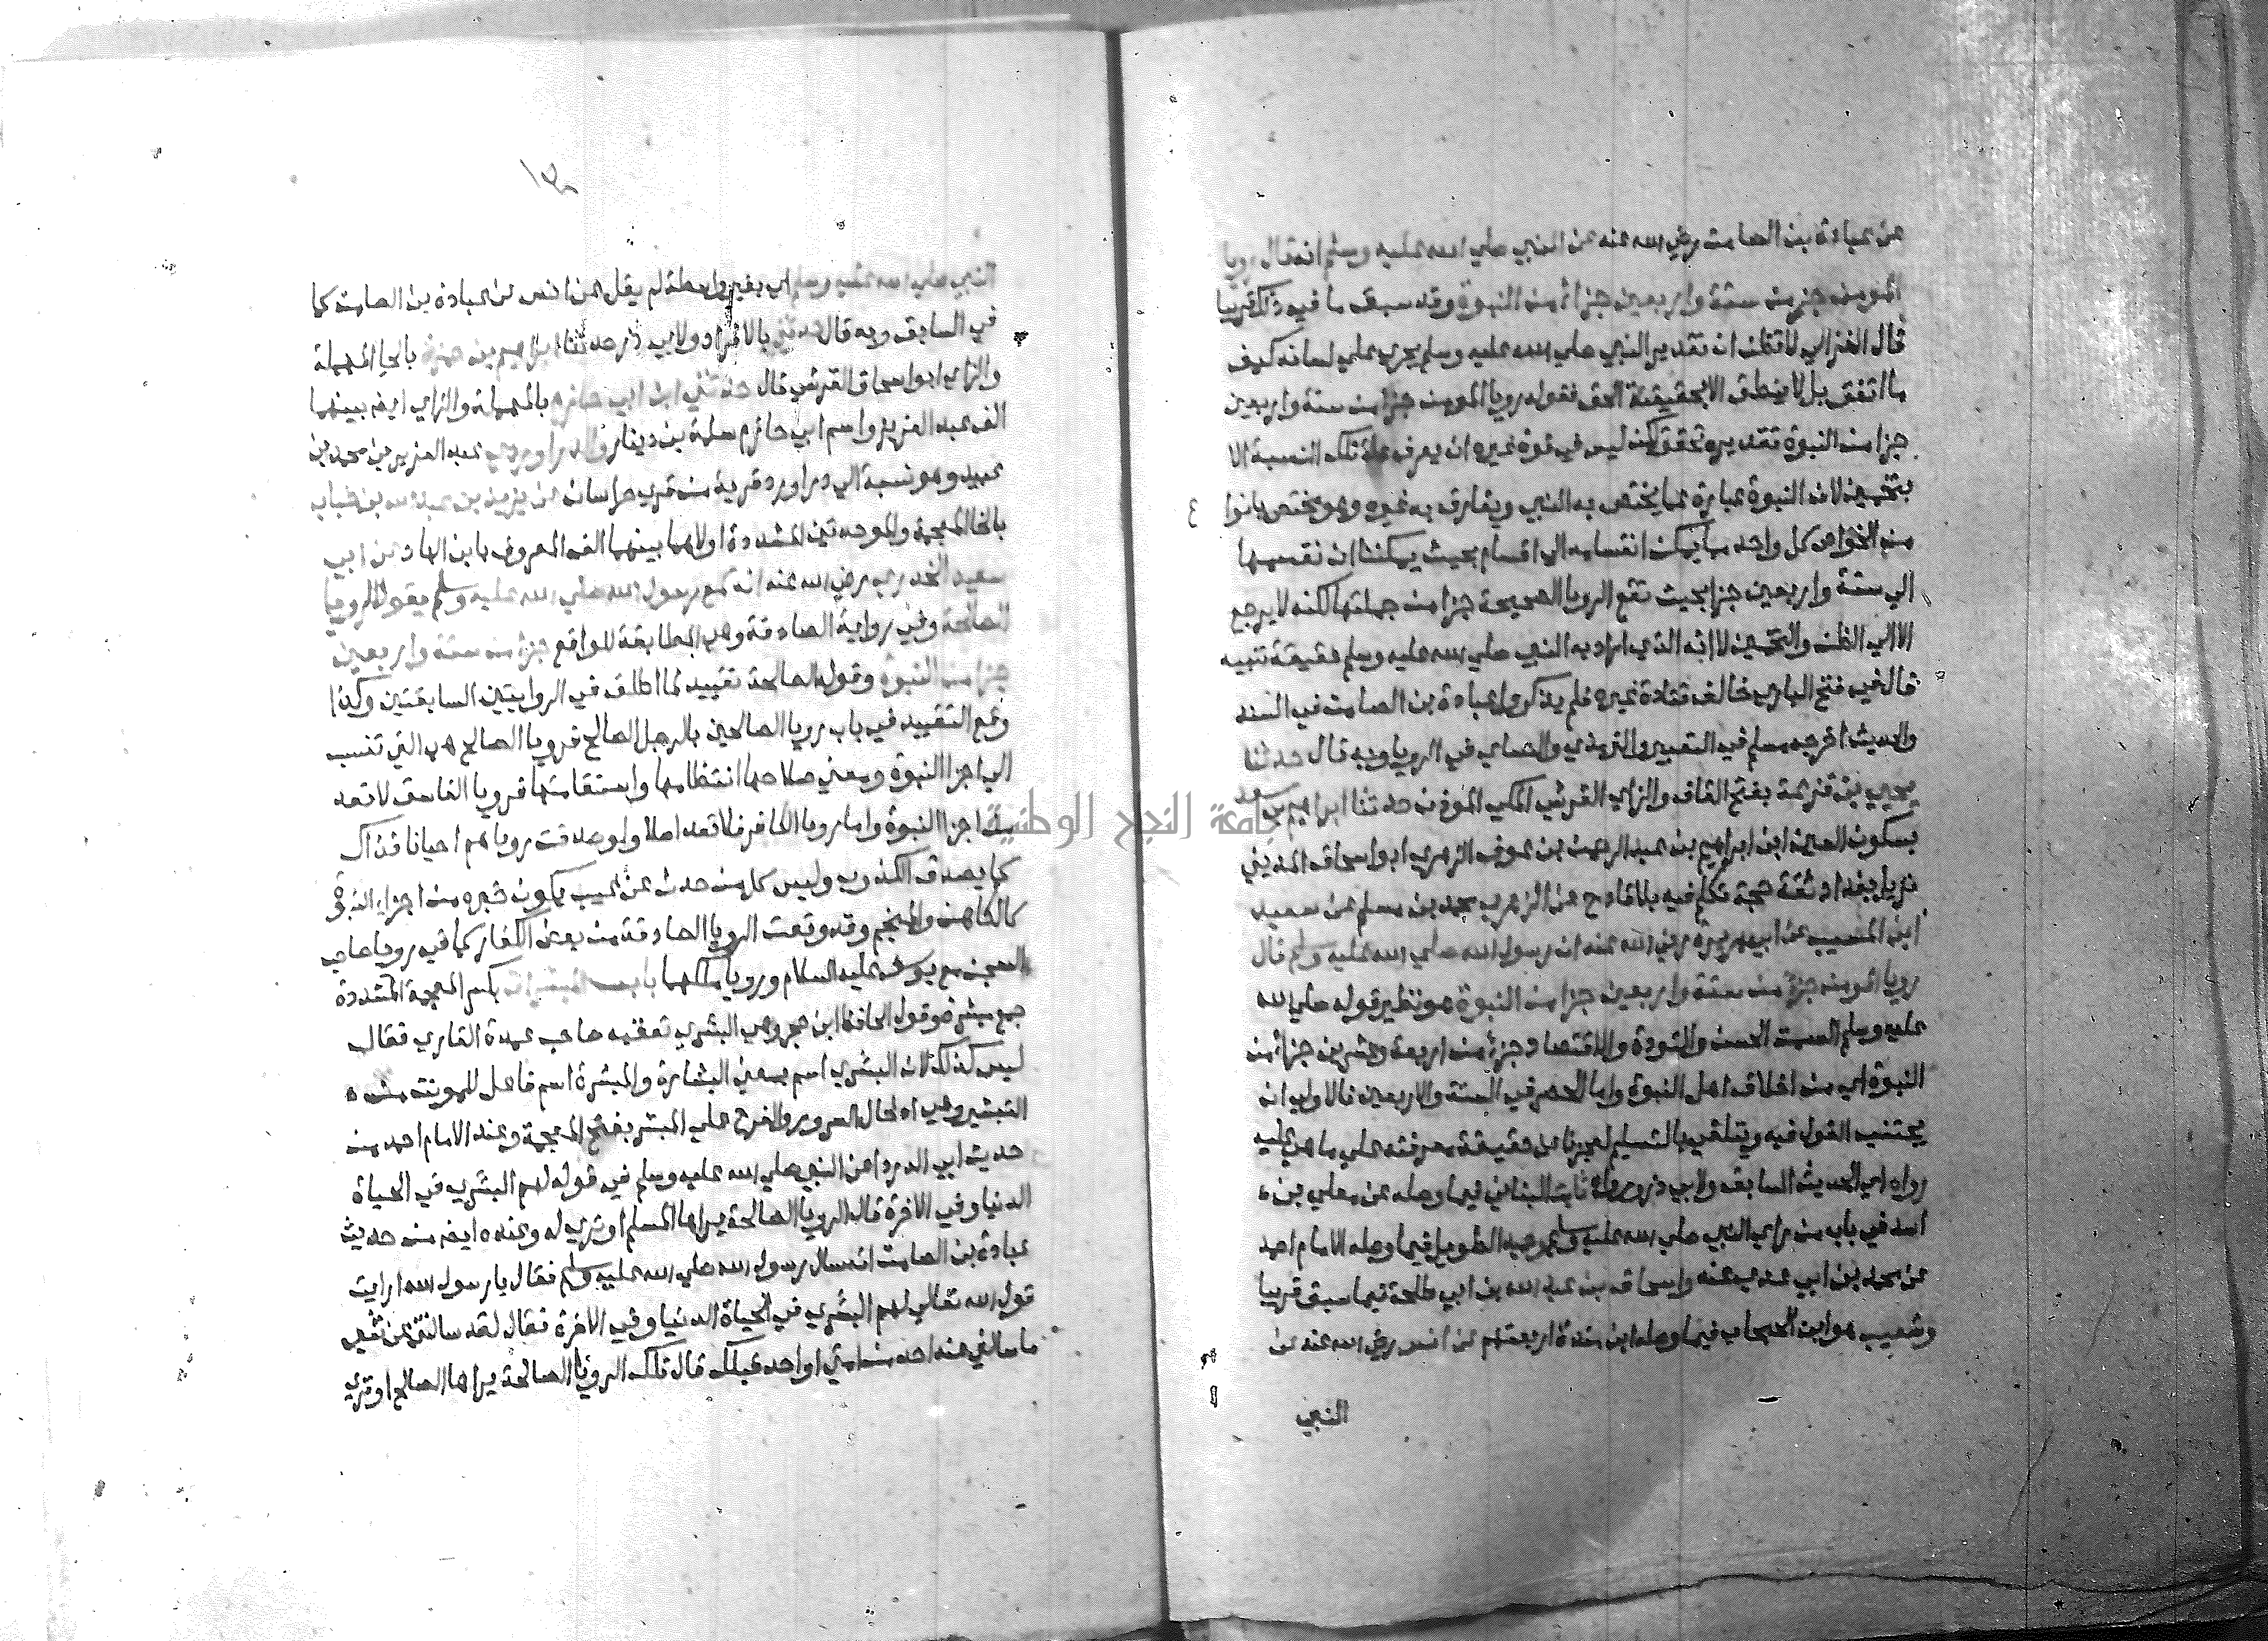 عن عبادة بن الصامت رضي الله عنه عن النبي صلي الله عليه وسلم انه قال رويا
المومن جز من ستة واربعين جزأ من النبوة وقد سبق ما في ذلك قريبا
قال الغزالي لا تظن ان تقدير النبي صلي الله عليه وسلم يجري علي لسانه كيف
ما اتفق بل لا ينطق الا بحقيقة الحق فقوله رويا المومن جزا من ستة واربعين
جزا من النبوة تقدير تحقق لكن ليس في قوة غيره ان يعرف علة تلك النسبة الا
بتخمين لان النبوة عبارة عما يختص به النبي ويفارق به غيره وهو يختص بانوا
ع
من الخواص كل واحد منها يمكن انقسامه الي اقسام بحيث يمكننا ان نقسمها
الي ستة واربعين جزا بحيث تقع الرويا الصحيحة جزا من جملتها لكنه لا يرجع
الا الي الظن والتخمين لا انه الذي اراد به النبي صلي الله عليه وسلم حقيقة تنبيه
قال في فتح الباري خالف قتادة غيره فلم يذكروا عبادة بن الصامت في السند
والحديث اخرجه مسلم في التعبير والترمذي والنساي في الرويا وبه قال حدثنا
يحيي بن قزعة بفتح القاف والزاي القرشي المكي الموذن حدثنا ابراهيم بن سعد
بسكون العين ابن ابراهيم بن عبد الرحمن بن عوف الزهري ابو اسحاق المديني
نزيل بغداد ثقة حجة تكلم فيه بلا قادح عن الزهري محمد بن مسلم عن سعيد
ابن المسيب عن ابي هريرة رضي الله عنه ان رسول الله صلي الله عليه وسلم قال
رويا المومن جزأ من ستة واربعين جزا من النبوة هو نظير قوله صلي الله
عليه وسلم السمت الحسن والتودة والاقتصاد جزأ من اربعة وعشرين جزأ من
النبوة اي من اخلاق اهل النبوة واما الحصر في الستة والاربعين فالاولي ان
يجتنب القول فيه ويتلقي بالتسليم لعجزنا عن حقيقة معرفته علي ما هي عليه
رواه اي الحديث السابق ولابي ذر ورواه ثابت البناني فيما وصله عن معلي بن
اسد في باب من راي النبي صلي الله عليه وسلم وحميد الطويل فيما وصله الامام احمد
عن محمد بن ابي عدي عنه واسحاق بن عبد الله بن ابي طلحة فيما سبق قريبا
وشعيب هو ابن الحبحاب فيما وصله ابن مندة اربعتهم عن انس رضي الله عنه عن
النبي
النبي صلي الله عليه وسلم اي بغير واسطة لم يقل عن انس عن عبادة بن الصامت كما
في السابق وبه قال حدثني بالافراد ولابي ذر حدثنا ابراهيم بن حمزة بالحا المهملة
والزاي ابو اسحاق القرشي قال حدثني ابن ابي حازم بالمهملة والزاي ايضا بينهما
الف عبد العزيز واسم ابي حازم سلمة بن دينار والدراوردي عبد العزيز بن محمد بن
عبيد وهو نسبة الي دراورد قرية من قري خراسان عن يزيد بن عبد الله بن خباب
بالخا المعجمة والموحدتين المشددة اولاهما بينهما الف المعروف بابن الهاد عن ابي
سعيد الخدري رضي الله عنه انه سمع رسول الله صلي الله عليه وسلم يقول الرويا
الصالحة وفي رواية الصادقة وهي المطابقة للواقع جزأ من ستة واربعين
جزا من النبوة وقوله الصالحة تقييد لما اطلق في الروايتين السابقتين وكذا
وقع التقييد في باب رويا الصالحين بالرجل الصالح فرويا الصالح هي التي تنسب
الي اجزا النبوة ومعني صلاحها انتظامها واستقامتها فرويا الفاسق لا تعد
من اجزا النبوة واما رويا الكافر فلا تعد اصلا ولو صدقت روياهم احيانا فذاك
كما يصدق الكذوب وليس كل من حدث عن غيب يكون خبره من اجزاء النبوة
كالكاهن والمنجم وقد وقعت الرويا الصادقة من بعض الكفار كما في رويا صاحبي
السجن مع يوسف عليه السلام ورويا ملكهما باب المبشرات بكسر المعجمة المشددة
جمع مبشرة وقول الحافظ ابن حجر وهي البشري تعقبه صاحب عمدة القاري فقال
ليس كذلك لان البشري اسم بمعني البشارة والمبشرة اسم فاعل للمونث من
التبشير وهي ادخال السرور والفرح علي المبشر بفتح المعجمة وعند الامام احمد من
حديث ابي الدردا عن النبي صلي الله عليه وسلم في قوله لهم البشري في الحياة
الدنيا وفي الاخرة قال الرويا الصالحة يراها المسلم او تري له وعنده ايضا من حديث
عبادة بن الصامت انه سال رسول الله صلي الله عليه وسلم فقال يا رسول الله ارايت
قول الله تعالي لهم البشري في الحياة الدنيا وفي الاخرة فقال لقد سالتني عن شي
ما سالني عنه احد من امتي او احد قبلك قال تلك الرويا الصالحة يراها الصالح او تري
جامعة النجاح الوطنية